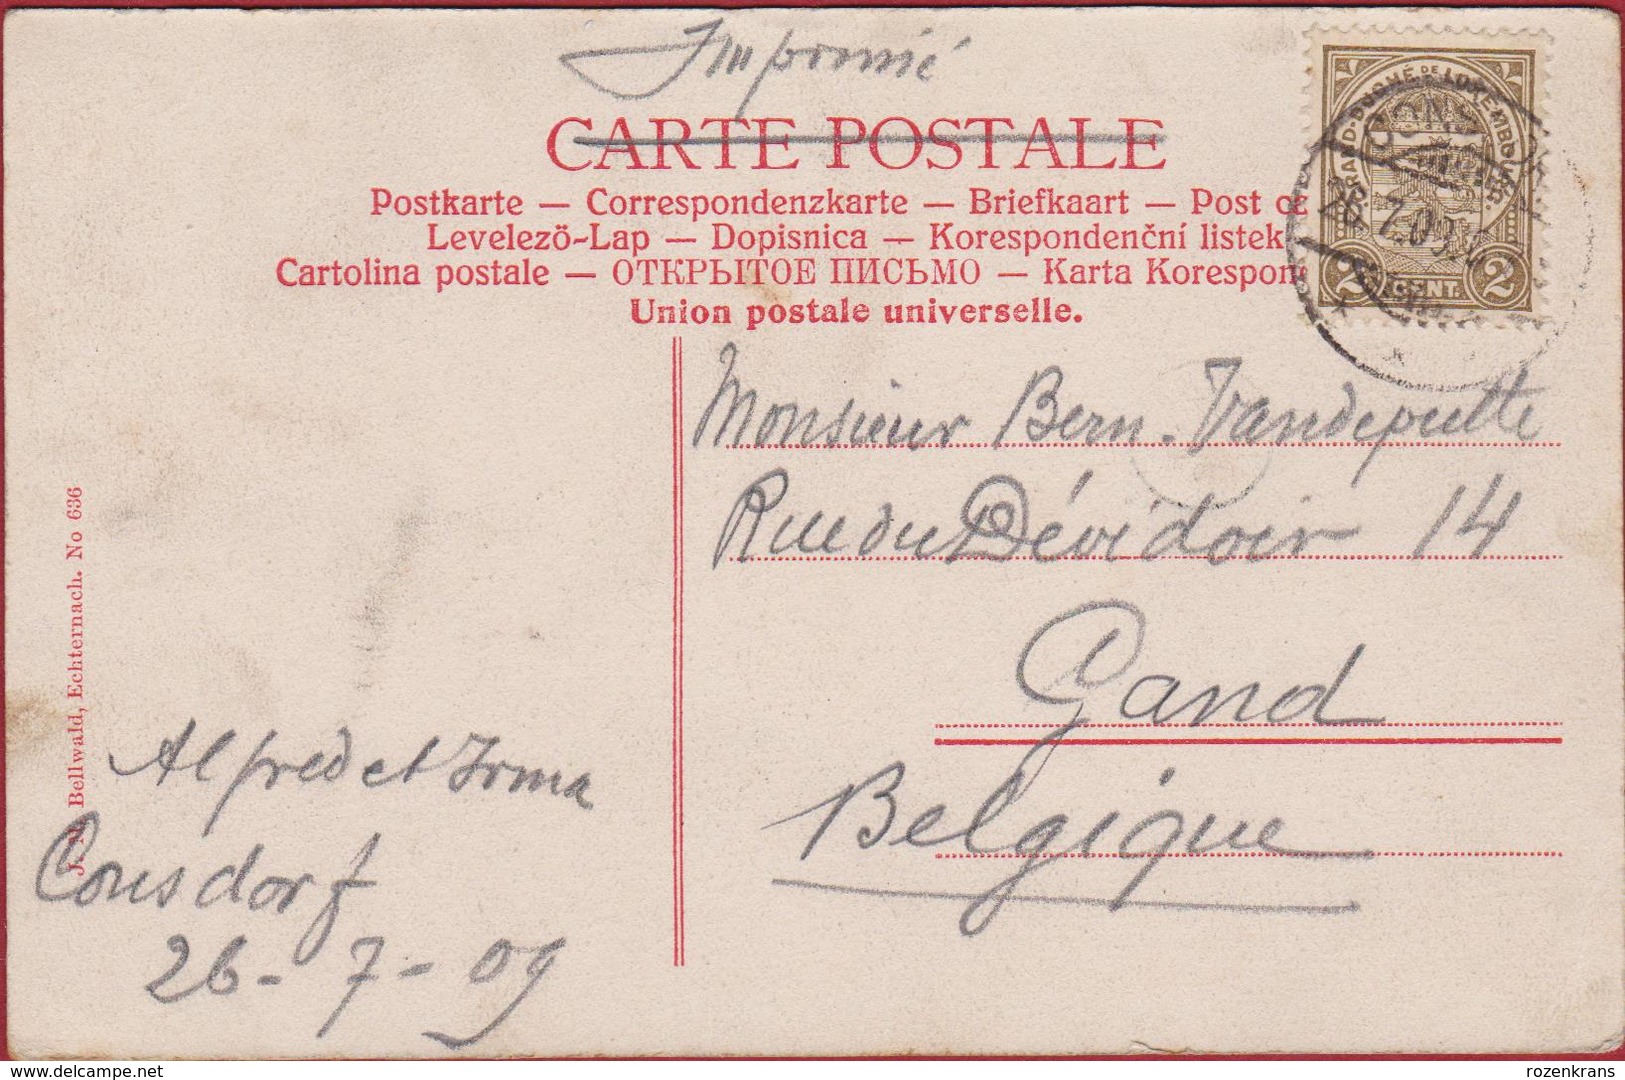 Imprimé
CARTE POSTALE
Postkarte — Correspondenzkarte — Briefkaart — Post ca
Levelező-Lap — Dopisnica — Korespondenční listek
Cartolina postale — ОТКРЫТОЕ ПИСЬМО — Karta Korespon
Union postale universelle.
GRAND-DUCHÉ DE LUXEMBOURG.
26.7.09
2 CENT. 2
Monsieur Bern. Vandeputte
Rue du Dévidoir 14
Gand
Belgique
Bellwald, Echternach. No 636
Alfred et Irma
Consdorf
26-7-09
rozenkrans